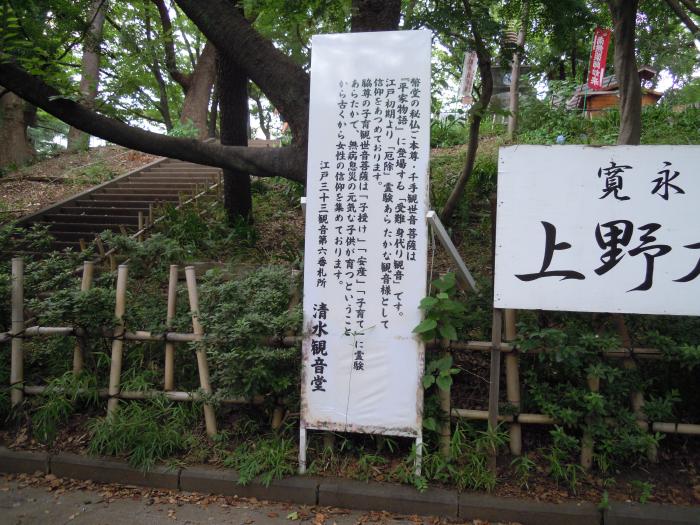 幣堂の秘仏ご本尊・千手観世音菩薩は
『平家物語』に登場する「受難 身代り観音」です。
江戸初期より、厄除、霊験あら たかな観音様として
信仰をあつめております。
脇尊の子育観世音菩薩は「子授け」「安産」「子育て」に霊験
あらたかで、無病息災の元気な子供が育つということ
から古くから女性の信仰を集めております。
江戸三十三観音第六番札所
清水観音堂
寛永
上野